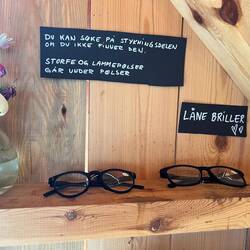 DU KAN SØKE PÅ STYKNINGSDELEN
OM DU IKKE FINNER DEN.
STORFE OG LAMMEPØLSER
GÅR UNDER PØLSER
LÅNE BRILLER